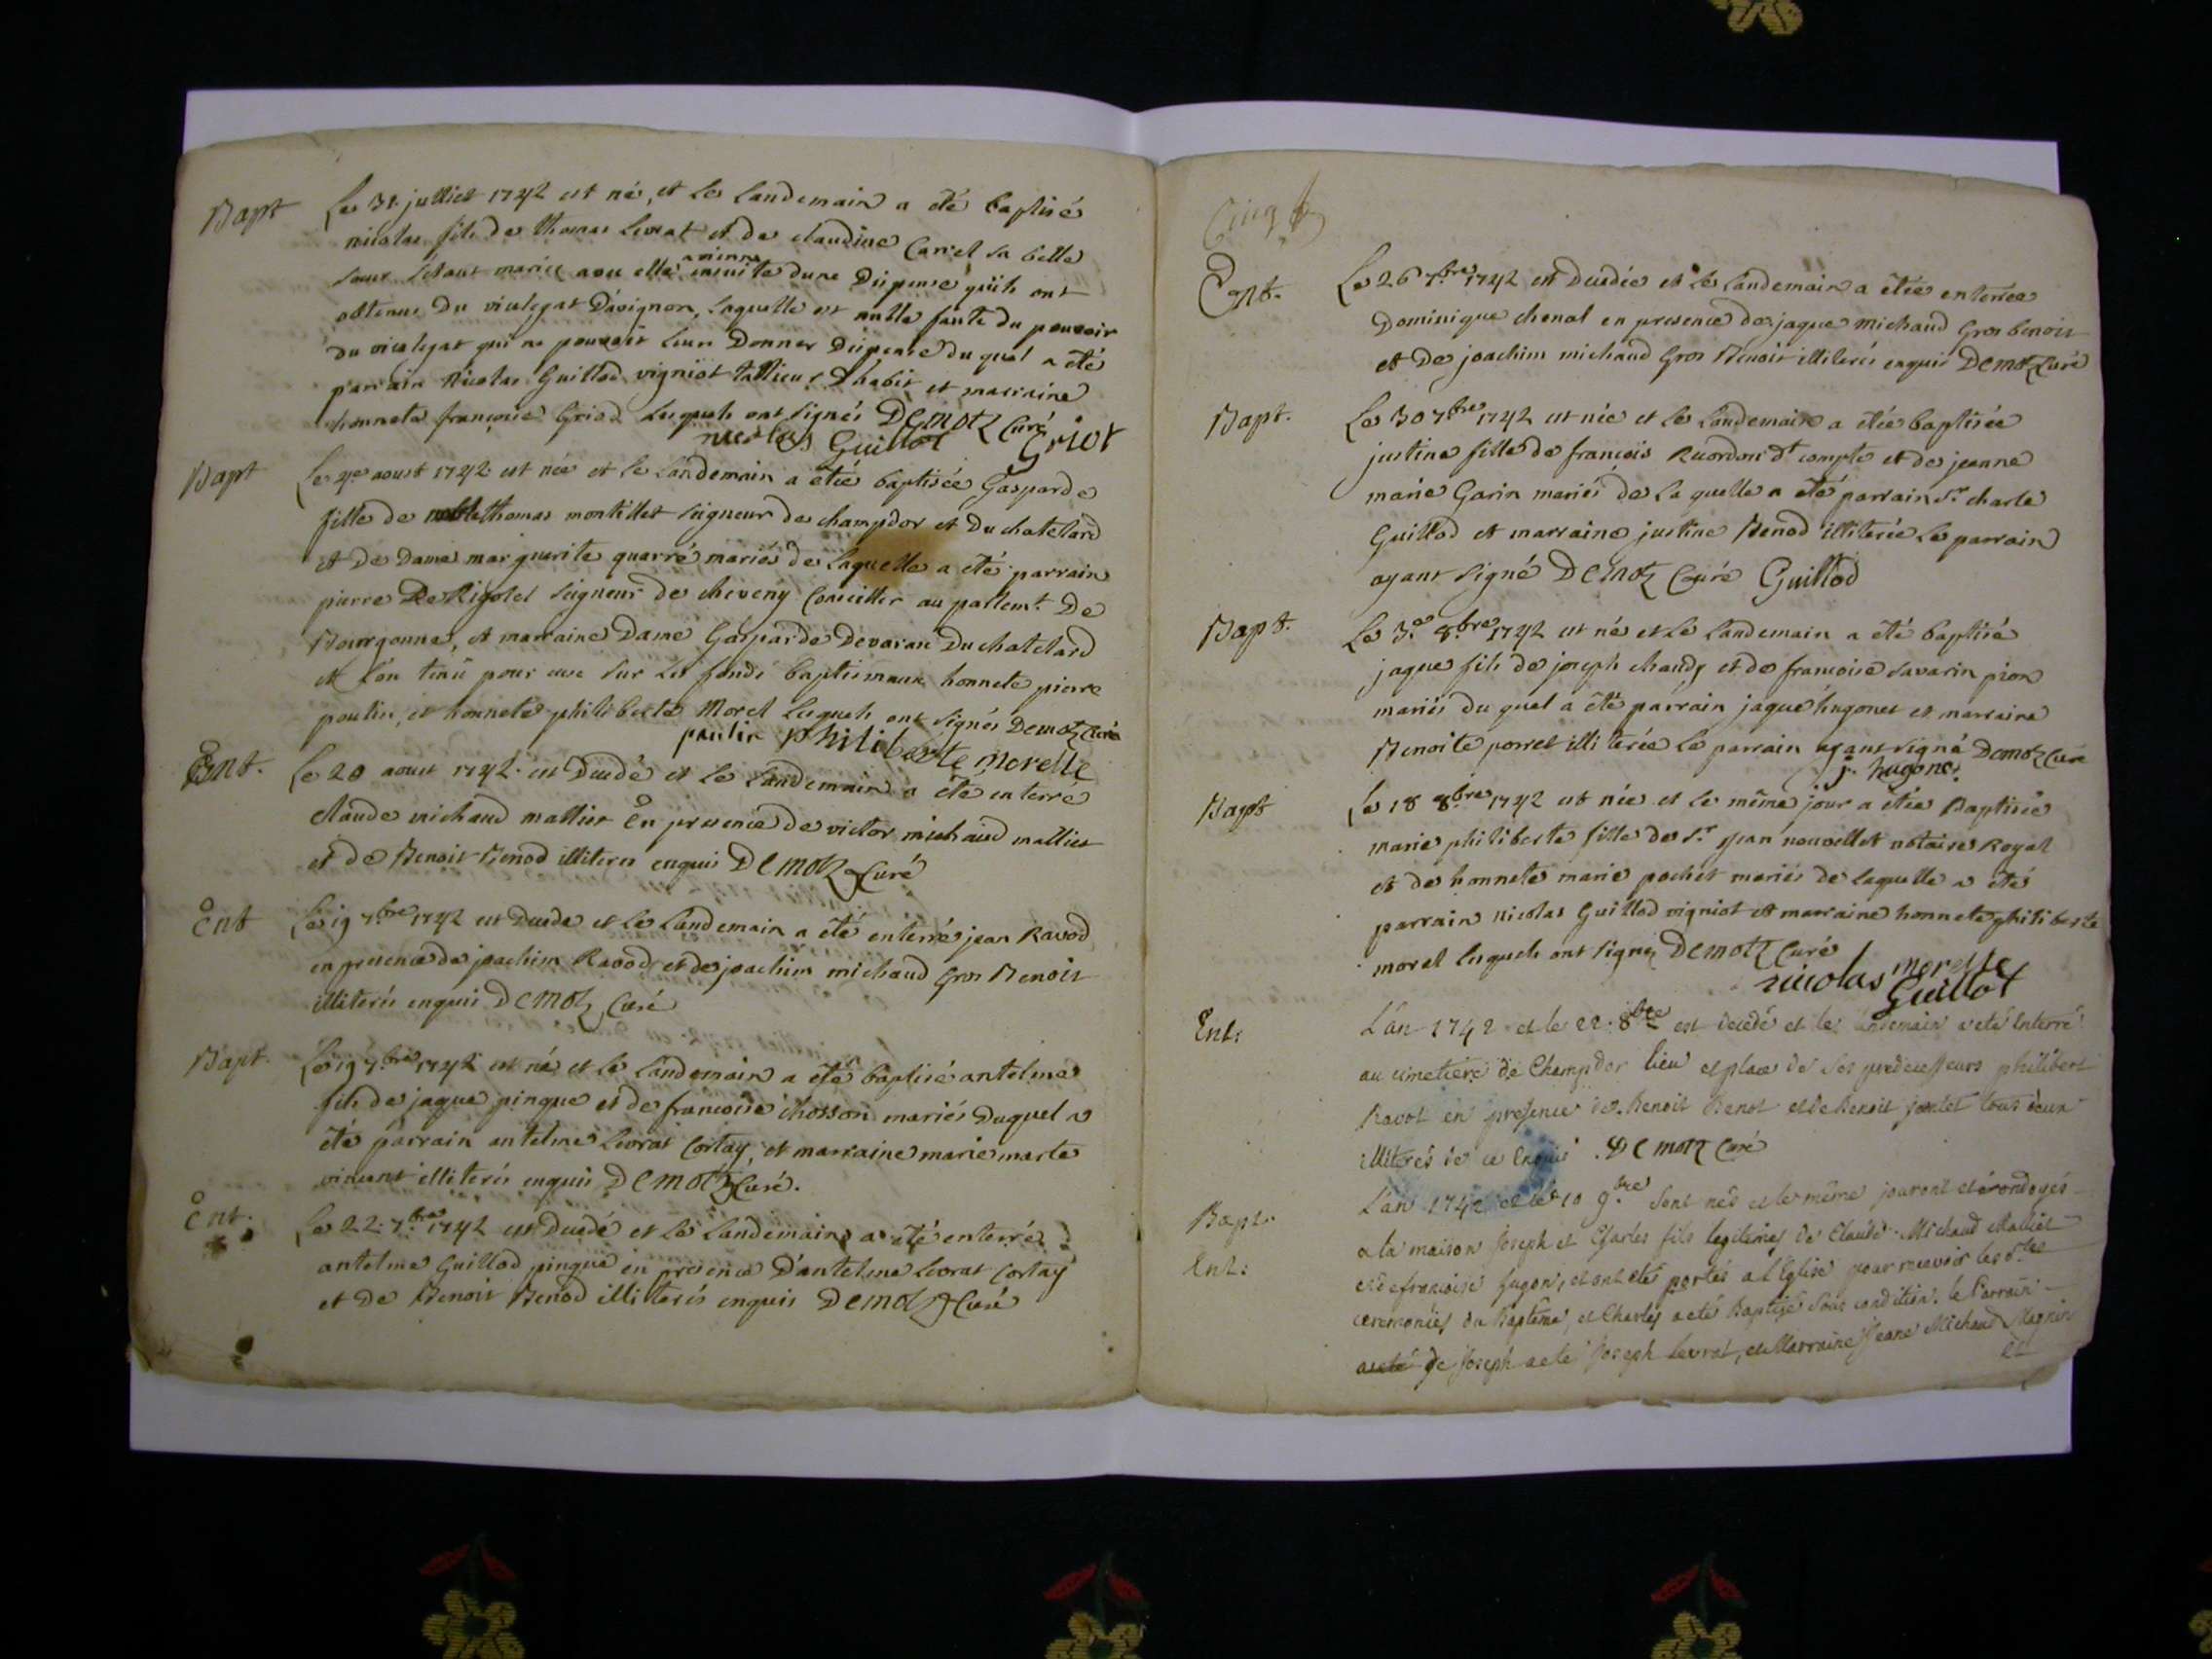 Bapt Le 31 julliet 1742 est né, et le landemain a été baptisé
nicolas fils de thomas Levrat et de claudine Carrel sa belle
soeur s'étant mariés avec elle ensuite dune Dispense qu'ils ont
obtenue Du vicelegat D'avignon, laquelle est nulle faute du pouvoir
du vicelegat qui ne pouvoit leur Donner Dispense du quel a été
parrain Nicolas Guillod vigniot tallieur Dhabit et marraine
honnete françoise Griod lesquels ont signés Demotz Curé
nicolas Guillot Griot
Bapt Le 4e aoust 1742 est née et le landemain a étée baptisée Gasparde
fille de noble thomas montillet seigneur de champdor et Du chatelard
et de Dame marguerite quarré mariés de laquelle a été parrain
pierre De Rigolet seigneur de cheveny Conseiller au parlemt. De
Bourgonne, et marraine Dame Gasparde Du chatelard
et l'on tenü pour eux sur les fonds baptismaux honnete pierre
poulin, et honnete philiberte Morel lesquels ont signés Demotz Curé
paulin philiberte morelle
Ent. Le 20 aoust 1742. est Decedé et le landemain a été enterré
claude michaud mallier En presence de victor michaud mallier
et de Benoit Benod illiterés enquis Demotz Curé
Ent Le 19 7.bre 1742 est Decedé et le landemain a été enterré jean Ravod
en presence de joachim Ravod et de joachim michaud Gros Benoit
illiterés enquis Demotz Curé
Bapt. Le 19 7.bre 1742 est né et le landemain a été baptisé antelme
fils de jaque pingue et de francoise chosson mariés Duquel a
été parrain antelme Levrat Cortay, et marraine marie marte
vincent illiterés enquis Demotz Curé.
Ent. Le 22. 7.bre 1742 est Decedé et le landemain a été enterré
antelme Guillod pingue en presence D'antelme Levrat Cortay
et de Benoit Benod illiterés enquis Demotz Curé
Cinq
Ent. Le 26 7.bre 1742 est Decedée et le landemain a étée enterrée
Dominique chenal en presence de jaque michaud Gros benoit
et De joachim michaud Gros Benoit illiterés enquis Demotz Curé
Bapt. Le 30 7bre 1742 est née et le landemain a étée baptisée
justine fille de francois dt compte et de jeanne
marie Garin mariés de la quelle a été parrain Sr. charle
Guillod et marraine justine Benod illiterée le parrain
ayant signé Demotz Curé Guillod
Bapt. Le 3.e 8.bre 1742 est né et le landemain a été baptisé
jaque fils de joseph chandy et de francoise savarin pion
mariés du quel a été parrain jaque hugonet et marraine
Benoite porret illiterée le parrain ayant signé Demotz Curé
j. hugonet
Bapt Le 18 8.bre 1742 est née et le même jour a étée Baptisée
marie philiberte fille de Sr. jean nouvellet notaire Royal
et de honnete marie pochet mariés de laquelle a été
parrain nicolas Guillod vigniot et marraine honnete philiberte
morel lesquels ont signez Demotz Curé
nicolas morelle
Guillot
Ent: L'an 1742 et le 22. 8bre est decedé et le landemain a eté Enterré
au cimetiere de Champdor lieu et place de ses predecesseurs philibert
Ravot en presence de Benoit Benot et de Benoit tous deux
illiterés de ce Enquis. Demotz Curé
Bapt. L'an 1742 et le 10 9.bre sont nés et le même jour ont eté ondoyés
Ent: a la maison Joseph et Charles fils legitimes de Claude Michaud Mallier
et de francoise hugon, et ont eté portés a l'Eglise pour recevoir les Stes
ceremonies du Baptême, et Charles a eté Baptisé sous condition. le Parrain
a eté de Joseph a eté Joseph Levrat, et Marraine Jeane Michaud Magnin
et